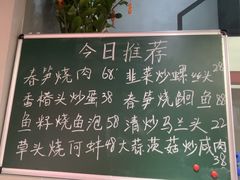 今日推荐
春笋烧肉68 韭菜炒螺丝头28
香椿头炒蛋38 春笋烧鮰鱼88
鱼籽烧鱼泡58 清炒马兰头22
草头烧河蚌48 大蒜茨菇炒咸肉38